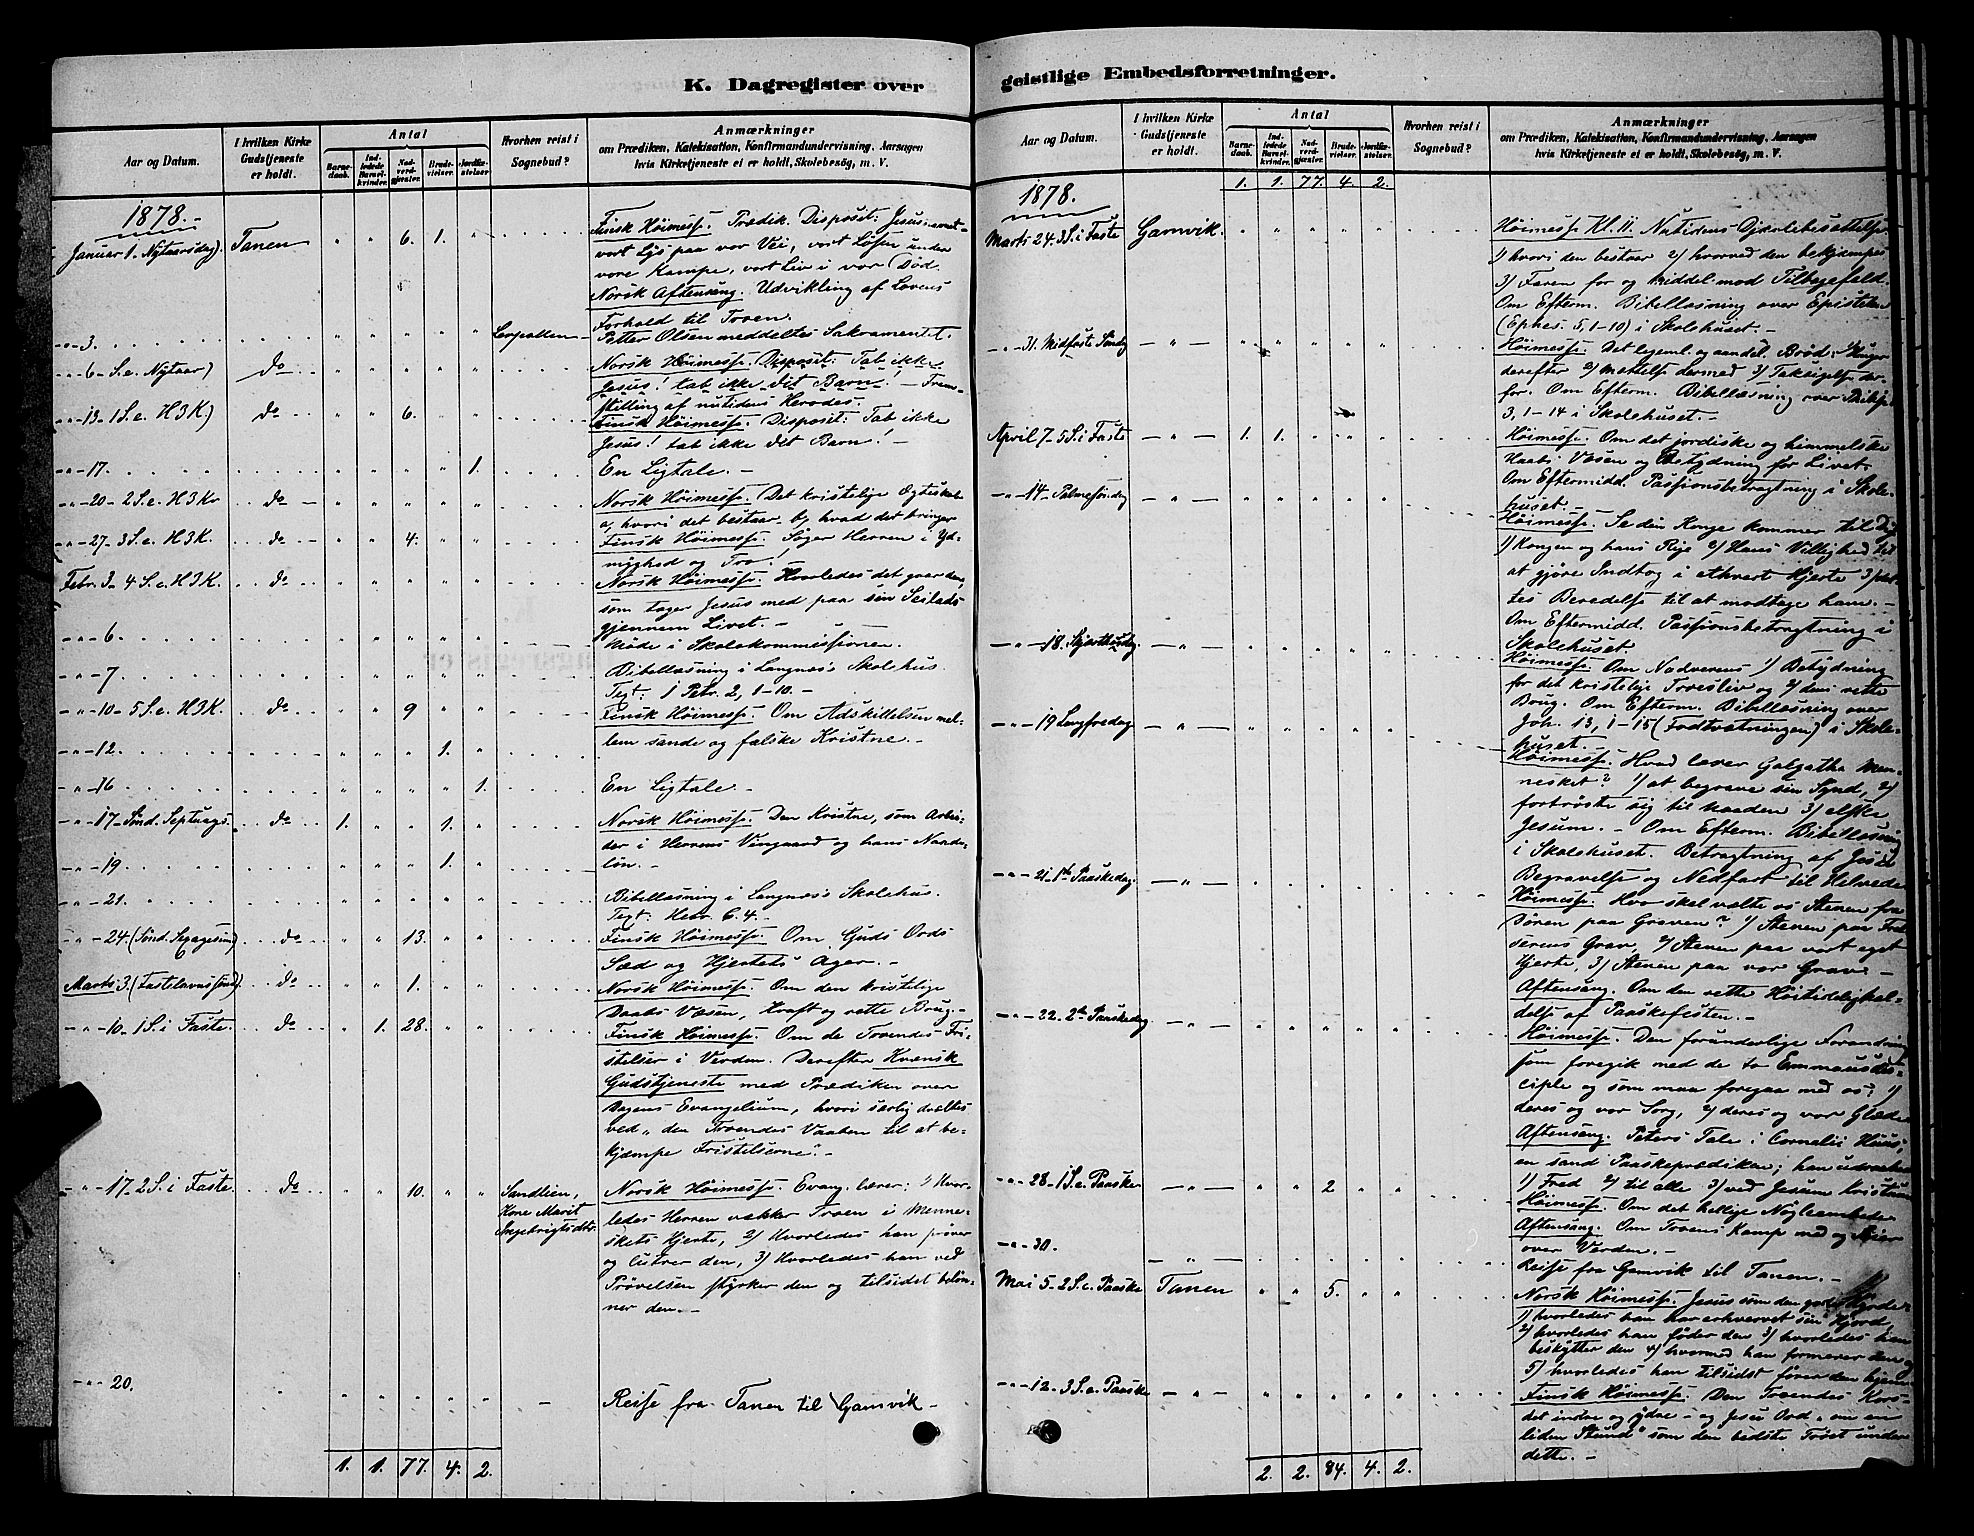 K. Dagregister over
Aar og Datum.
I hvilken Kirke Gudstjeneste er holdt.
Antal
Barnedaab.
Indledede Barselkvinder.
Nadverdgjæster.
Brudevielser.
Jordfæstelser.
Hvorhen reist i Sognebud?
Anmærkninger
om Prædiken, Katekisation, Konfirmandundervisning, Aarsagen
hvis Kirketjeneste ei er holdt, Skolebesøg, m. V.
1878.-
Januar 1. Nytaarsdag). Tanen " " 6. 1. "
Finsk Høimesse. Prædik. Disposit: Jesusnavnet
vort Lys paa vor Vei, vort Løsen under
vore Kampe, vort Liv i vor Død.
Norsk Aftensang. Udvikling af Lovens
Forhold til Troen.
-"-3. " " " " "
Petter Olsen meddeltes Sakramentet.
-"-6- S. e. Nytaar) do " " " " "
Norsk Høimesse. Disposit: Tab ikke
Jesus! tab ikke dit Barn! - Frem-
stilling af nutidens Herodes.
-"-13- 1 S. e. H3K) do " " 6. " "
Finsk Høimesse. Disposit: Tab ikke
Jesus! tab ikke det Barn! -
-"-17. " " " " 1.
En Ligtale. -
-"-20- 2 S. e. H3K do " " " " "
Norsk Høimesse. Det kristelige Ægteskab
a, hvori det bestaar b, hvad det bringer
-"-27- 3 S. e. H3K. do " " 4. " "
Finsk Høimesse. Søger Herren i Yd-
myghed og Tro!
Febr. 3- 4 S. e. H3K. do " " " " "
Norsk Høimesse. Hvorledes det gaar den,
som tager Jesus med paa sin Seilads
gjennem Livet. -
-"-6 " " " " "
Møde i Skolekommissionen.
-"-7 " " " " "
Bibellæsning i Langnæs Skolehus.
Text: 1 Petr. 2, 1-10. -
-"-10- 5 S. e. H3K. do " " 9 " "
Finsk Høimesse. Om Adskillelsen mel-
lem sande og falske Kristne. -
-"-12. " " " 1. "
-"-16 " " " " 1.
En Ligtale. -
-"-17- Sønd. Septuags. do 1. " " 1. "
Norsk Høimesse. Den Kristne, som Arbei-
der i Herrens Vingaard og hans Naade-
løn. -
-"-19 " " " 1. "
-"-21. " " " " "
Bibellæsning i Langnæs Skolehus.
Text: Hebr. 6. 4. -
-"-24. (Sønd. Sexagesim) do " " 13. " "
Finsk Høimesse. Om Guds Ords
Sæd og Hjertets Ager. -
Marts 3. (Fastelavnssønd) do " " 1. " "
Norsk Høimesse. Om den kristelige
Daabs Væsen, Kraft og rette Brug. -
-"-10- 1 S. i Faste. do " 1. 28. " "
Finsk Høimesse. Om de Troendes Fri-
stelser i Verden. Derefter Kvænsk
Gudstjeneste med Prædiken over
Dagens Evangelium, hvori særlig dvæltes
ved "den Troendes Vaaben til at be-
kjæmpe Fristelserne". -
-"-17- 2 S. i Faste. do " " 10. " "
Sandlien,
Kone Marit
Ingebrigtsdtr.
Norsk Høimesse. Evang. lærer: 1) Hvor-
ledes Herren vækker Troen i Menne-
skets Hjerte, 2) Hvorledes han prøver
og lutrer den, 3) Hvorledes han ved
Prøvelsen styrker den og tilsidst beløn-
ner den. -
-"-20. " " " " " -
Reise fra Tanen til Gamvik -
1. 1. 77. 4. 2.
geistlige Embedsforretninger.
Aar og Datum.
I hvilken Kirke Gudstjeneste er holdt.
Antal
Barnedaab.
Indledede Barselkvinder.
Nadverdgjæster.
Brudevielser.
Jordfæstelser.
Hvorhen reist i Sognebud?
Anmærkninger
om Prædiken, Katekisation, Konfirmandundervisning, Aarsagen
hvis Kirketjeneste ei er holdt, Skolebesøg, m. V.
1. 1. 77. 4. 2.
1878.
Marts 24. 3 S. i Faste Gamvik. " " " " "
Høimesse Kl. 11. Nutidens Djævlebesættelse
1) hvori den bestaar 2) hvorved den bekjæmpes
3) Faren for og Middel mod Tilbagefald.
Om Efterm. Bibellæsning over Epistelen
(Ephes. 5, 1-10) i Skolehuset. -
-"-31. Midfaste Søndag -"- " " " " "
Høimesse. Det legeml. og aandel. Brød: 1) Hunger
derefter 2) Mættelse dermed 3) Taksigelse der-
for. Om Efterm. Bibellæsning over
3, 1-14 i Skolehuset. -
April 7- 5 S. i Faste -"- 1. 1. " " "
Høimesse. Om det jordiske og himmelske
Haabs Væsen og Betydning for Livet.
Om Eftermidd. Passionsbetragtning i Skole-
huset. -
-"-14- Palmesøndag -"- " " " " "
Høimesse. Se din Konge kommer til Dig
1) Kongen og hans Rige 2) Hans Villighed til
at gjøre Indtog i ethvert Hjerte 3)
tes Beredelse til at modtage ham. -
Om Eftermidd. Passionsbetragtning i
Skolehuset.
-"-18. Skjærthorsdag. -"- " " " " "
Høimesse. Om Nadverens 1) Betydning
for det kristelige Troesliv og 2) dens rette
Brug. Om Efterm. Bibellæsning over
Joh. 13, 1-15 (Fodtvætningen) i Skole-
huset. -
-"-19 Langfredag -"- " " " " "
Høimesse. Hvad lærer Golgatha Men-
nesket? 1) at begræde sin Synd, 2)
fortrøste sig til Naaden 3) elske
Jesum. - Om Efterm. Bibellæsning
i Skolehuset. Betragtning af Jesu
Begravelse og Nedfart til Helvede
-"-21- 1ste Paaskedag -"- " " " " "
Høimesse. Hvo skal vælte os Stenen fra
Døren paa Graven? 1) Stenen paa Frel-
serens Grav, 2) Stenen paa vort eget
Hjerte, 3) Stenen paa vor Grav -
Aftensang. Om den rette Høitidelighol-
delse af Paaskefesten. -
-"-22. 2den Paaskedag -"- " " " " "
Høimesse. Den forunderlige Forandring
som foregik med de to Emmausdi-
ciple og som maa foregaa med os: 1)
deres og vor Sorg, 2) deres og vor Glæde
Aftensang. Peters Tale i Cornelii Huus,
en sand Paaskeprædiken; han udraaber
1) Fred 2) til alle 3) ved Jesum Kristum
-"-28- 1 S. e. Paaske -"- " " 2 " "
Høimesse. Om det hellige Nøgleembede
Aftensang. Om Troens Kamp med og Seier
over Verden. -
-"-30. -"-
Reise fra Gamvik til Tanen. -
Mai 5. 2 S. e. Paaske Tanen " " 5. " "
Norsk Høimesse. Jesus som den gode Hyrde
1) hvorledes han har erhvervet sin Hjord,
2) hvorledes han føder den 3) hvorledes han
beskytter den 4) hvormed han formerer den og
5) hvorledes han tilsidst fører den hjem
-"-12- 3 S. e. Paaske -"- " " " " "
Finsk Høimesse. Den Troendes Kors-
det indre og ydre - og Jesu Ord "om en
liden Stund" som den bedste Trøst under
dette. -
2. 2. 84. 4. 2.